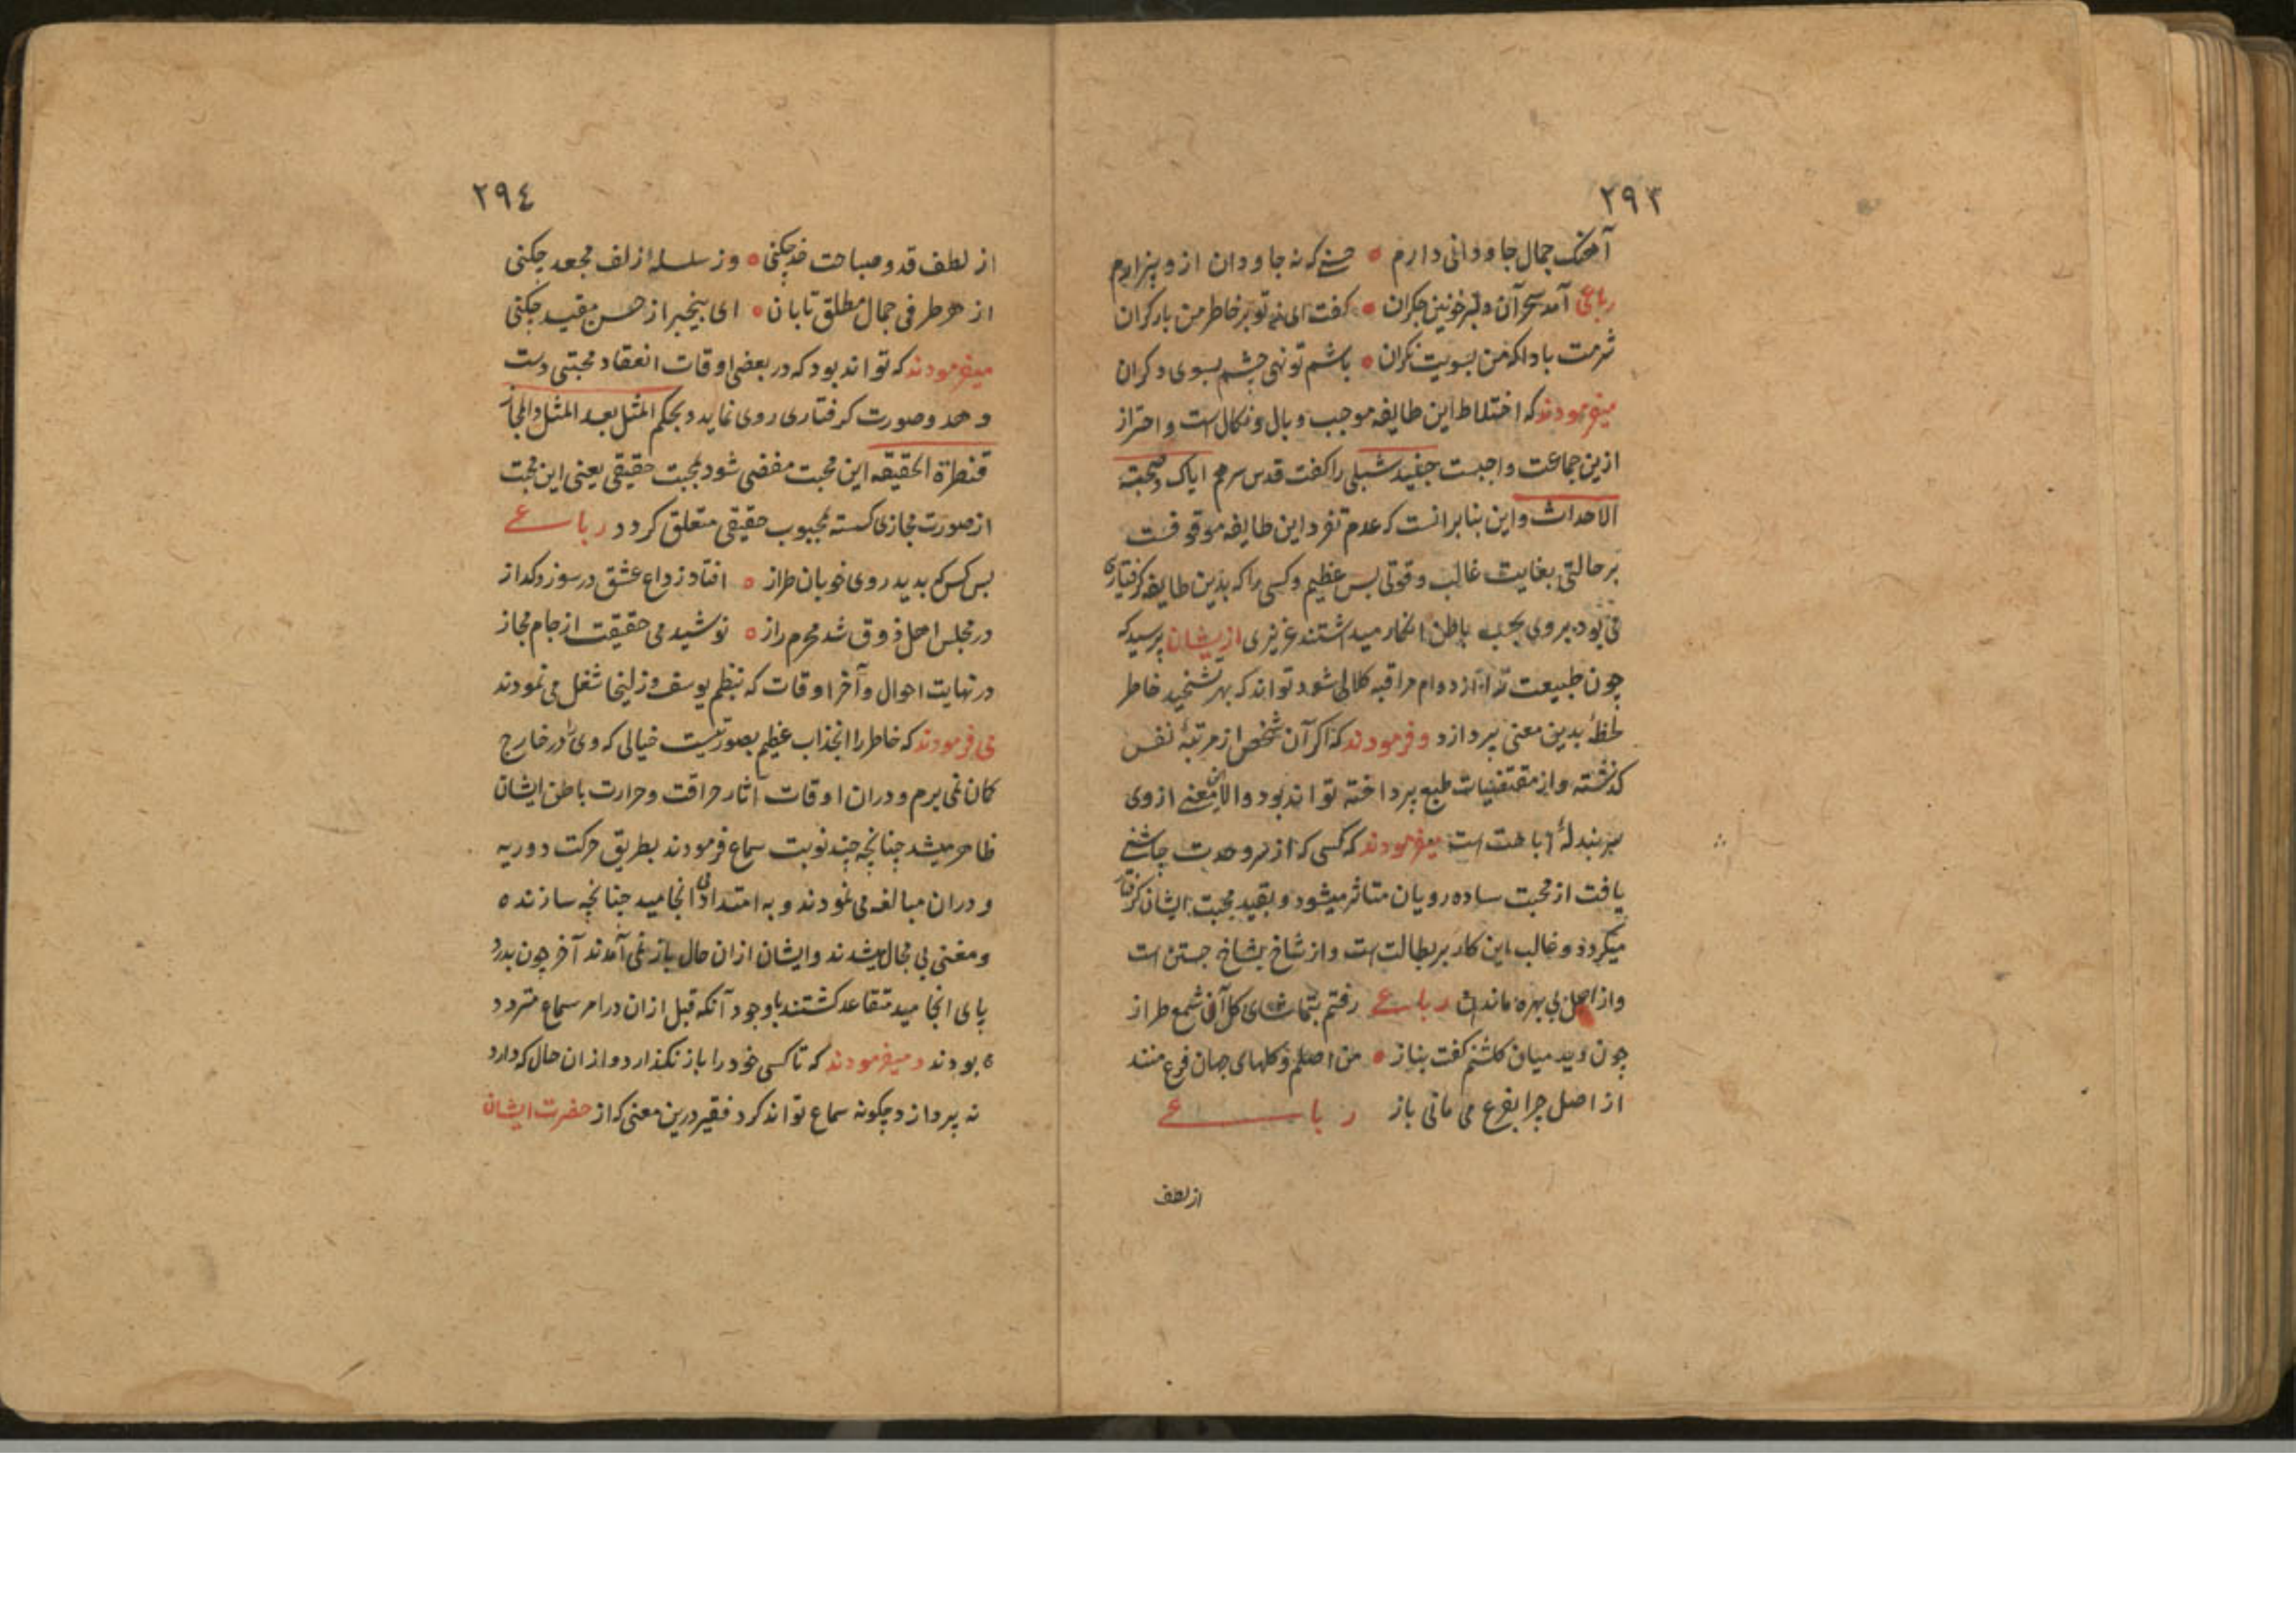 ۲۹۳
آهنک جمال جاودانی دارم ه حسنی که نه جاودان ازو بیزارم
رباعی آمد سحر آن دلبر خونین جکران ه کفت ای ز تو بر خاطر من بار کران
شرمت بادا که من بسویت نکران ه باشم تو نهی چشم بسوی دکران
میفرمودند که اختلاط این طایفه موجب وبال و نکال است و احتراز
ازین جماعت واجبست جنید شبلی را کفت قدس سرهم ایاک وصحبته
الاحداث و این بنابرانست که عدم تفرد این طایفه موقوفست
بر حالتی بغایت غالب و قوتی بس عظیم و کسی را که بدین طایفه کرفتاری
می بود بر وی بحب باطن انکار میداشتند عزیزی ازیشان پرسید که
چون طبیعت را از دوام مراقبه کلالی شود تواند که بهر تشحیذ خاطر
لحظهٔ بدین معنی پردازد و فرمودند که اکر آن شخص از مرتبهٔ نفس
کذشته و از مقتضیات طبع پرداخته تواند بود والا اینمعنی از وی
اباحت است میفرمودند که کسی که از سر وحدت چاشنی
یافت از محبت ساده رویان متاثر میشود و بقید محبت ایشان کرفتار
میکردد و غالب این کار بر بطالت است و از شاخ بشاخ جستن است
و از اصل بی بهره ماندن رباعی رفتم بتماشای کل آن شمع طراز
چون دید میان کلشنم کفت بناز ه من اصلم و کلهای جهان فرع منند
از اصل چرا بفرع می مانی باز رباعی
از لطف
۲۹٤
از لطف قد و صباحت خد چکنی ه وز سلسله زلف مجعد چکنی
از هر طرفی جمال مطلق تابان ه ای بیخبر از حسن مقید چکنی
میفرمودند که تواند بود که در بعضی اوقات انعقاد محبتی دست
دهد و صورت کرفتاری روی نماید و بحکم المثل بعد المثل والمجاز
قنطرة الحقیقه این محبت مفضی شود بمحبت حقیقی یعنی این محبت
از صورت مجازی کسسته بمحبوب حقیقی متعلق کردد رباعی
بس کس که بدید روی خوبان طراز ه افتاد ز داع عشق در سوز و کداز
در مجلس اهل ذوق شد محرم راز ه نوشید می حقیقت از جام مجاز
در نهایت احوال و آخر اوقات که بنظم یوسف و زلیخا شغل می نمودند
می فرمودند که خاطر را انجذاب عظیم بصورتیست خیالی که وی را در خارج
کان نمی برم و دران اوقات آثار حراقت و حرارت باطن ایشان
ظاهر میشد چنانچه چند نوبت سماع فرمودند بطریق حرکت دوریه
و دران مبالغه می نمودند و به امتدادی انجامید چنانچه سازنده
و مغنی بی مجال میشدند و ایشان ازان حال باز نمی آمدند آخر چون بدرد
پای انجامید متقاعد کشتند با وجود آنکه قبل ازان در امر سماع متردد
بودند و میفرمودند که تا کسی خود را باز نکذارد و ازان حال که دارد
نه پردازد چکونه سماع تواند کرد فقیر درین معنی که از حضرت ایشان